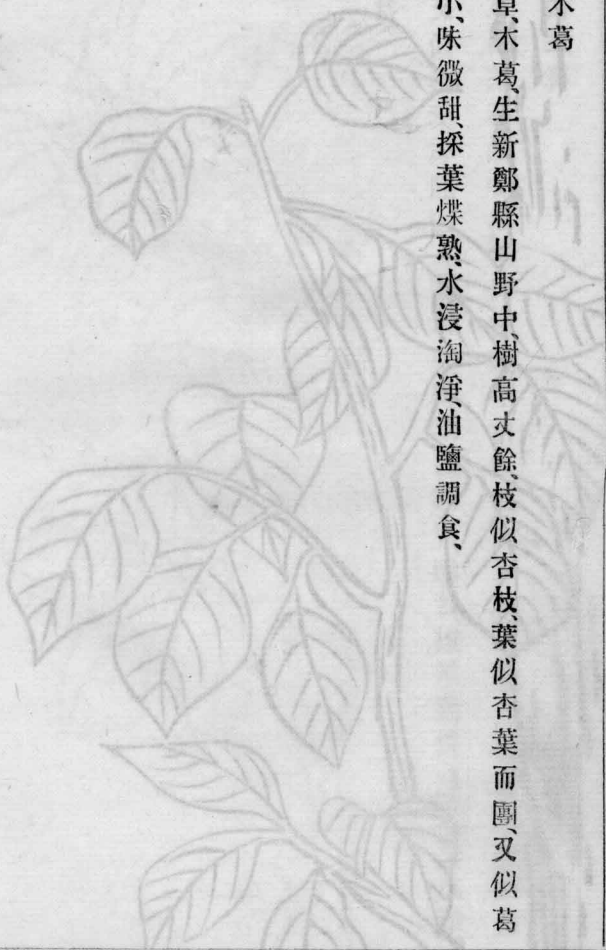 木葛
草、木葛、生新鄭縣山野中、樹高丈餘、枝似杏枝、葉似杏葉而團、又似葛
小、味微甜、採葉煠熟、水浸淘淨、油鹽調食、